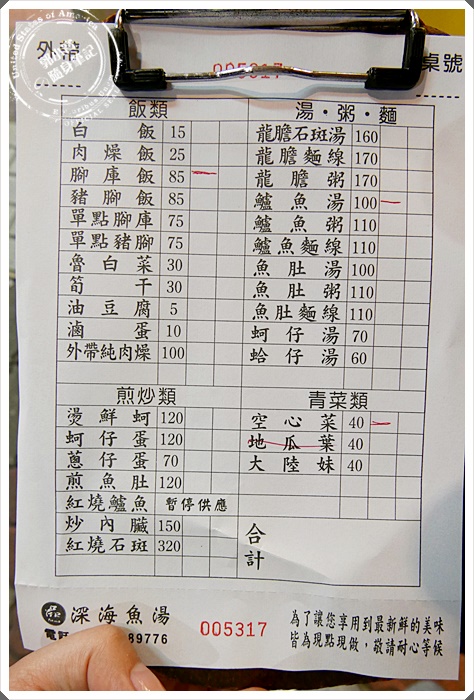 外帶
005317
桌號
飯類
白飯 15
肉燥飯 25
腳庫飯 85
豬腳飯 85
單點腳庫 75
單點豬腳 75
魯白菜 30
筍干 30
油豆腐 5
滷蛋 10
外帶純肉燥 100
湯・粥・麵
龍膽石斑湯 160
龍膽麵線 170
龍膽粥 170
鱸魚湯 100
鱸魚粥 110
鱸魚麵線 110
魚肚湯 100
魚肚粥 110
魚肚麵線 110
蚵仔湯 70
蛤仔湯 60
煎炒類
燙鮮蚵 120
蚵仔蛋 120
蔥仔蛋 70
煎魚肚 120
紅燒鱸魚 暫停供應
炒內臟 150
紅燒石斑 320
青菜類
空心菜 40
地瓜葉 40
大陸妹 40
合計
深海魚湯
電話
89776
005317
為了讓您享用到最新鮮的美味
皆為現點現做，敬請耐心等候